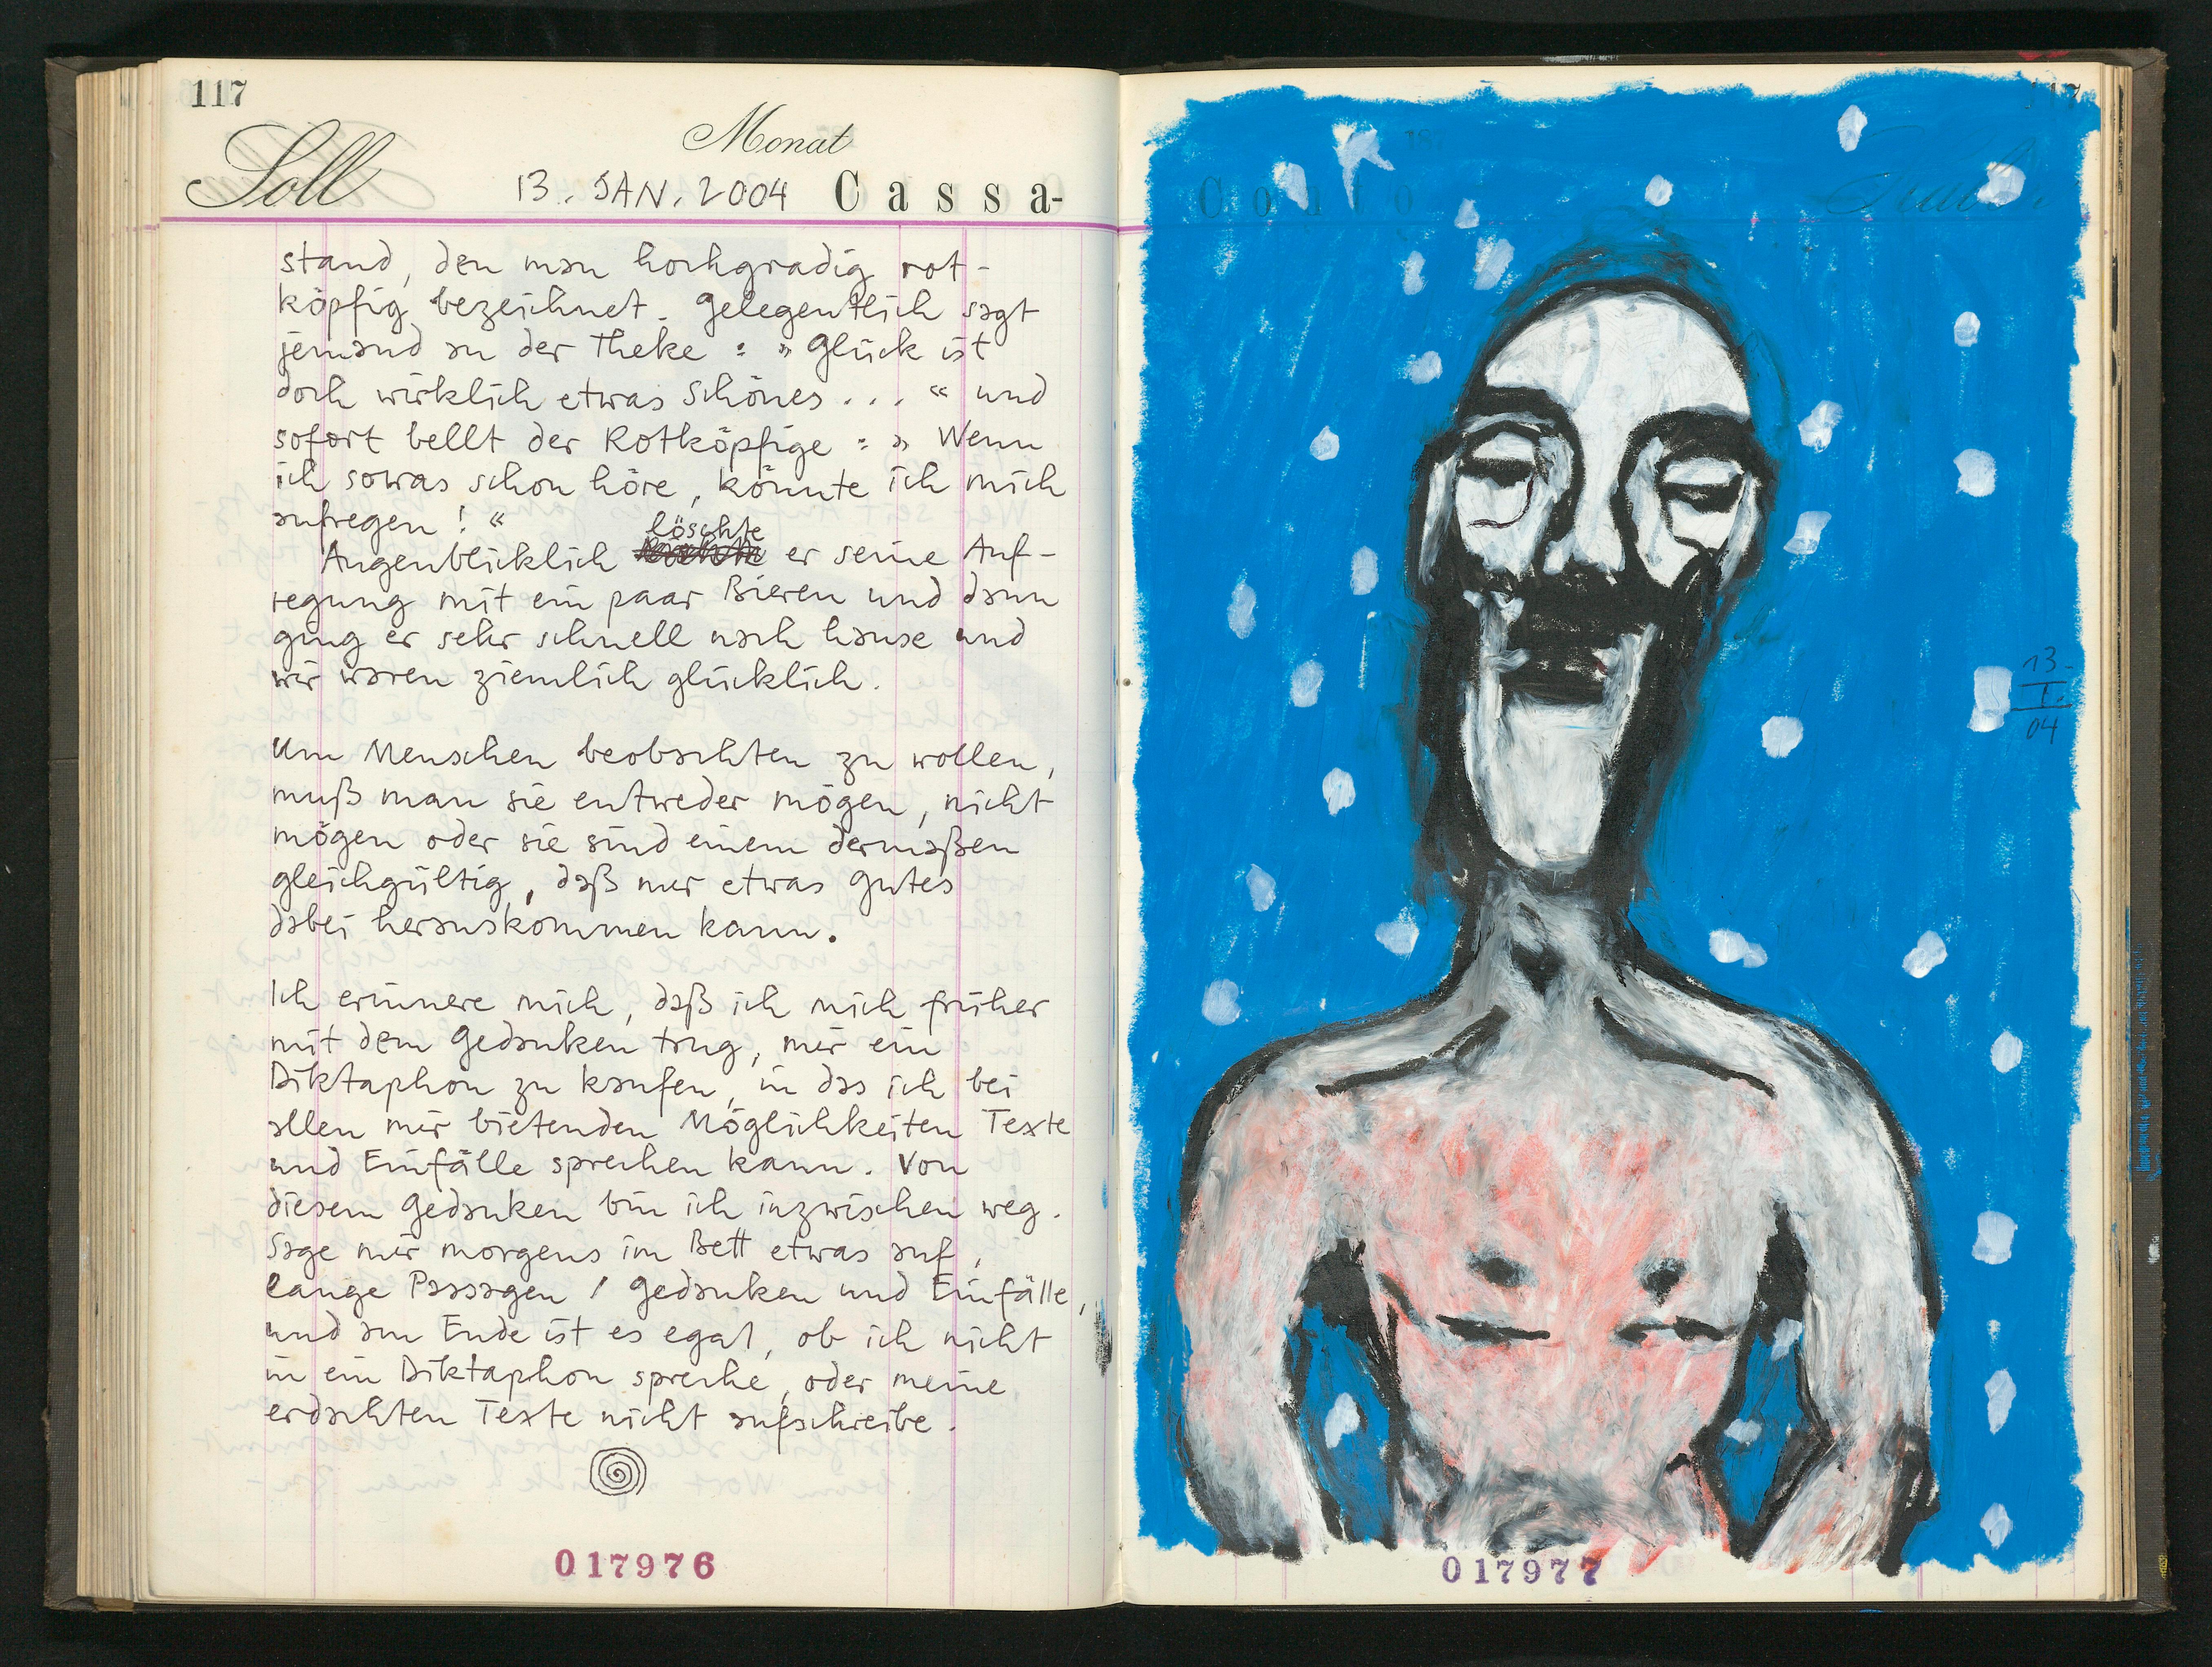 117
Soll
Monat
13. JAN. 2004 Cassa-
stand, den man hochgradig rot-
köpfig bezeichnet. Gelegentlich sagt
jemand an der Theke: » Glück ist
doch wirklich etwas Schönes... « und
sofort bellt der Rotköpfige: » Wenn
ich sowas schon höre, könnte ich mich
aufregen! «
löschte
Augenblicklich er seine Auf-
regung mit ein paar Bieren und dann
ging er sehr schnell nach hause und
wir waren ziemlich glücklich.
Um Menschen beobachten zu wollen,
muß man sie entweder mögen, nicht
mögen oder sie sind einem dermaßen
gleichgültig, daß nur etwas Gutes
dabei herauskommen kann.
Ich erinnere mich, daß ich mich früher
mit dem Gedanken trug, mir ein
Diktaphon zu kaufen, in das ich bei
allen mir bietenden Möglichkeiten Texte
und Einfälle sprechen kann. Von
diesem Gedanken bin ich inzwischen weg.
Sage mir morgens im Bett etwas auf,
lange Passagen / Gedanken und Einfälle,
und am Ende ist es egal, ob ich nicht
in ein Diktaphon spreche, oder meine
erdachten Texte nicht aufschreibe.
017976
117
Conto
13.
I.
04
017977